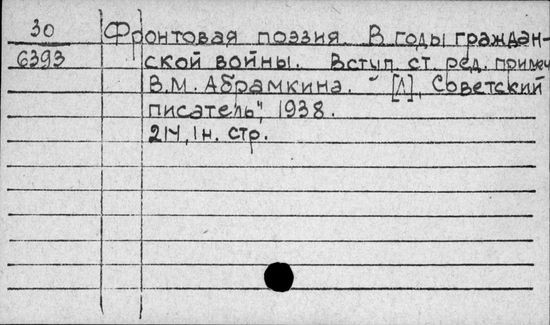 30 Фронтовая поэзия. В годы граждан-
6393 ской войны. Вступ. ст. ред. примеч
В.М. Абрамкина. [Л], "Советский
писатель", 1938.
214, 1 н. стр.